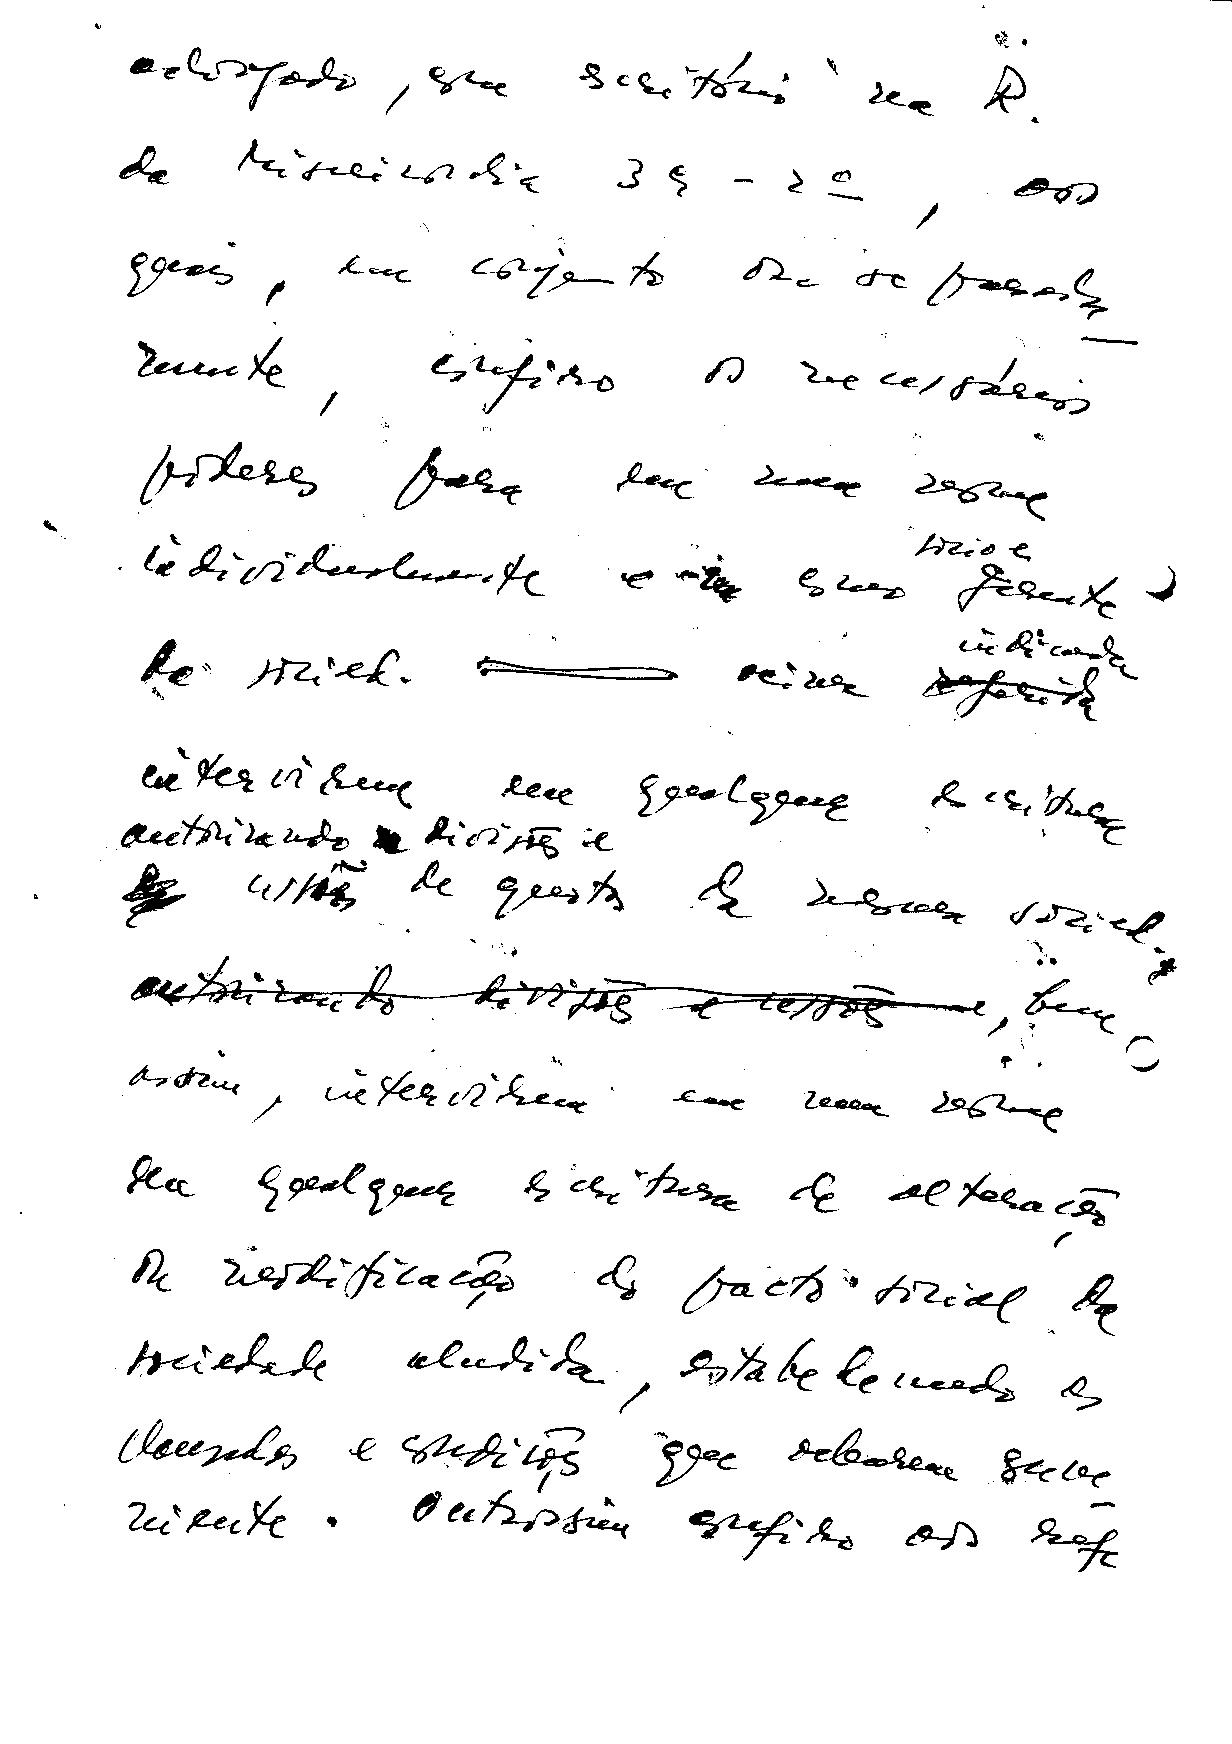 advogado, com escritório na R.
da Misericordia 39 - 2º, aos
quais, em conjunto ou separada
mente, confiro os necessários
poderes para em meu nome
individualmente e como sócio e gerente
da socied. acima indicada referida
intervirem em qualquer escritura
autorizando divisões e
cessões de quotas da mesma socied.
autorizando divisões e cessões e, bem
assim, intervirem em meu nome
em qualquer escritura de alteração
ou modificação do pacto social da
sociedade aludida, estabelecendo as
clausulas e condições que acharem conve
niente. Outrossim confiro aos